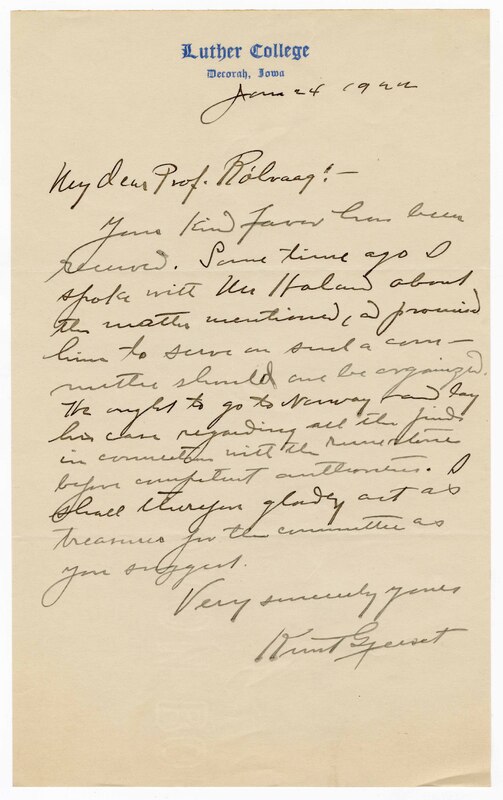 Luther College
Decorah, Iowa
Jan 24 1922
My dear Prof. Rölvaag:—
Your kind favor has been
received. Some time ago I
spoke with Mr Holand about
the matter mentioned, a promised
him to serve on such a com-
mittee should one be organized.
He ought to go to Norway and lay
his case regarding all the finds
in connection with the runestone
before competent authorities. I
shall therefore gladly act as
treasurer for the committee as
you suggest.
Very sincerely yours
Knut Gjerset